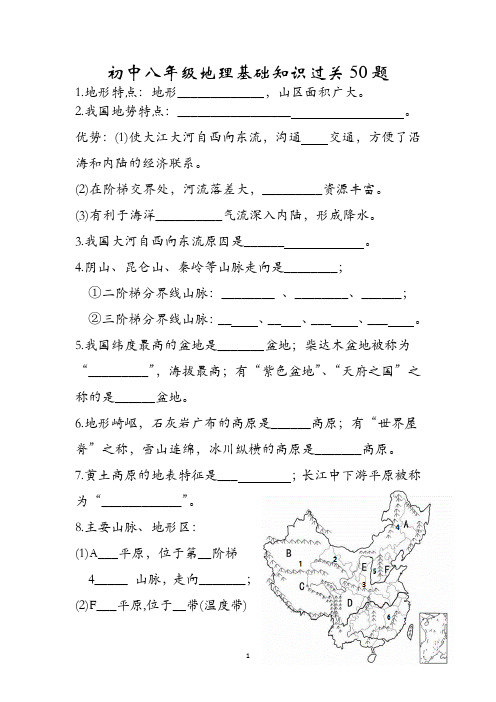 初中八年级地理基础知识过关50题
1.地形特点：地形_____________，山区面积广大。
2.我国地势特点：_________________ _________________。
优势：(1)使大江大河自西向东流，沟通____交通，方便了沿
海和内陆的经济联系。
(2)在阶梯交界处，河流落差大，_________资源丰富。
(3)有利于海洋__________气流深入内陆，形成降水。
3.我国大河自西向东流原因是______ ____________。
4.阴山、昆仑山、秦岭等山脉走向是________；
①二阶梯分界线山脉：________ 、________、______；
②三阶梯分界线山脉：______、_____、_______、_______。
5.我国纬度最高的盆地是_______盆地；柴达木盆地被称为
“_________”，海拔最高；有“紫色盆地”、“天府之国”之
称的是______盆地。
6.地形崎岖，石灰岩广布的高原是______高原；有“世界屋
脊”之称，雪山连绵，冰川纵横的高原是_______高原。
7.黄土高原的地表特征是___ ________；长江中下游平原被称
为“____________”。
8.主要山脉、地形区：
(1)A___平原，位于第__阶梯
4_____ 山脉，走向_______；
(2)F___平原,位于__带(温度带)
A
4
B
2
1
E
5
F
C
3
D
6
1